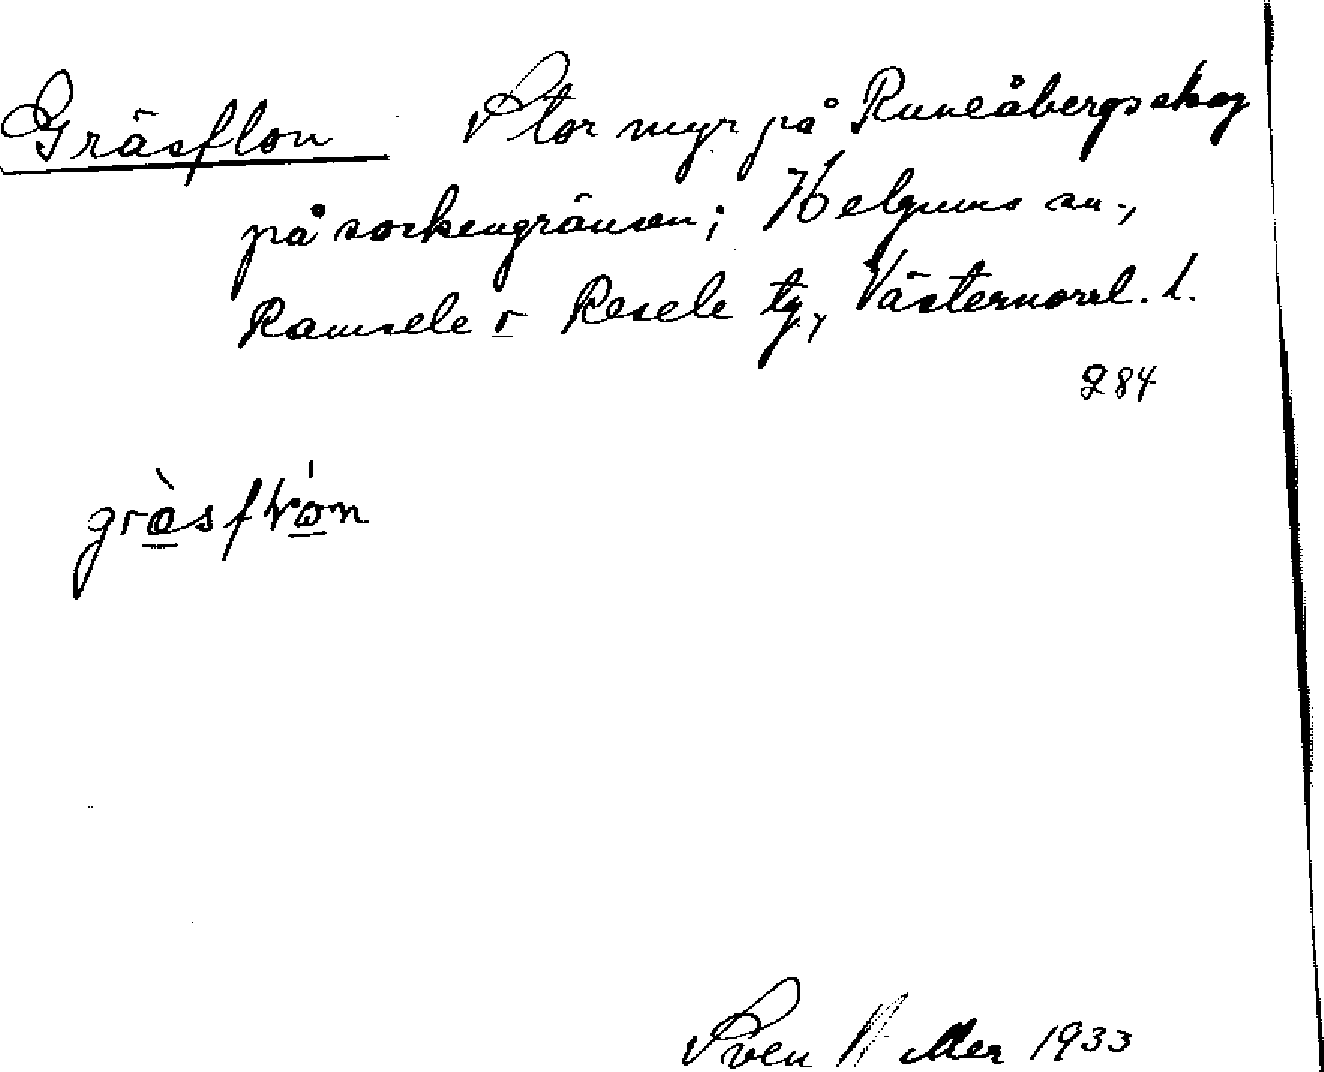 Gräsflon Stor myr på Runeåbergsskog
på sockengränsen; Helgums sn.,
Ramsele o Resele tg, Västernorrl. l.
284
Sven 1933